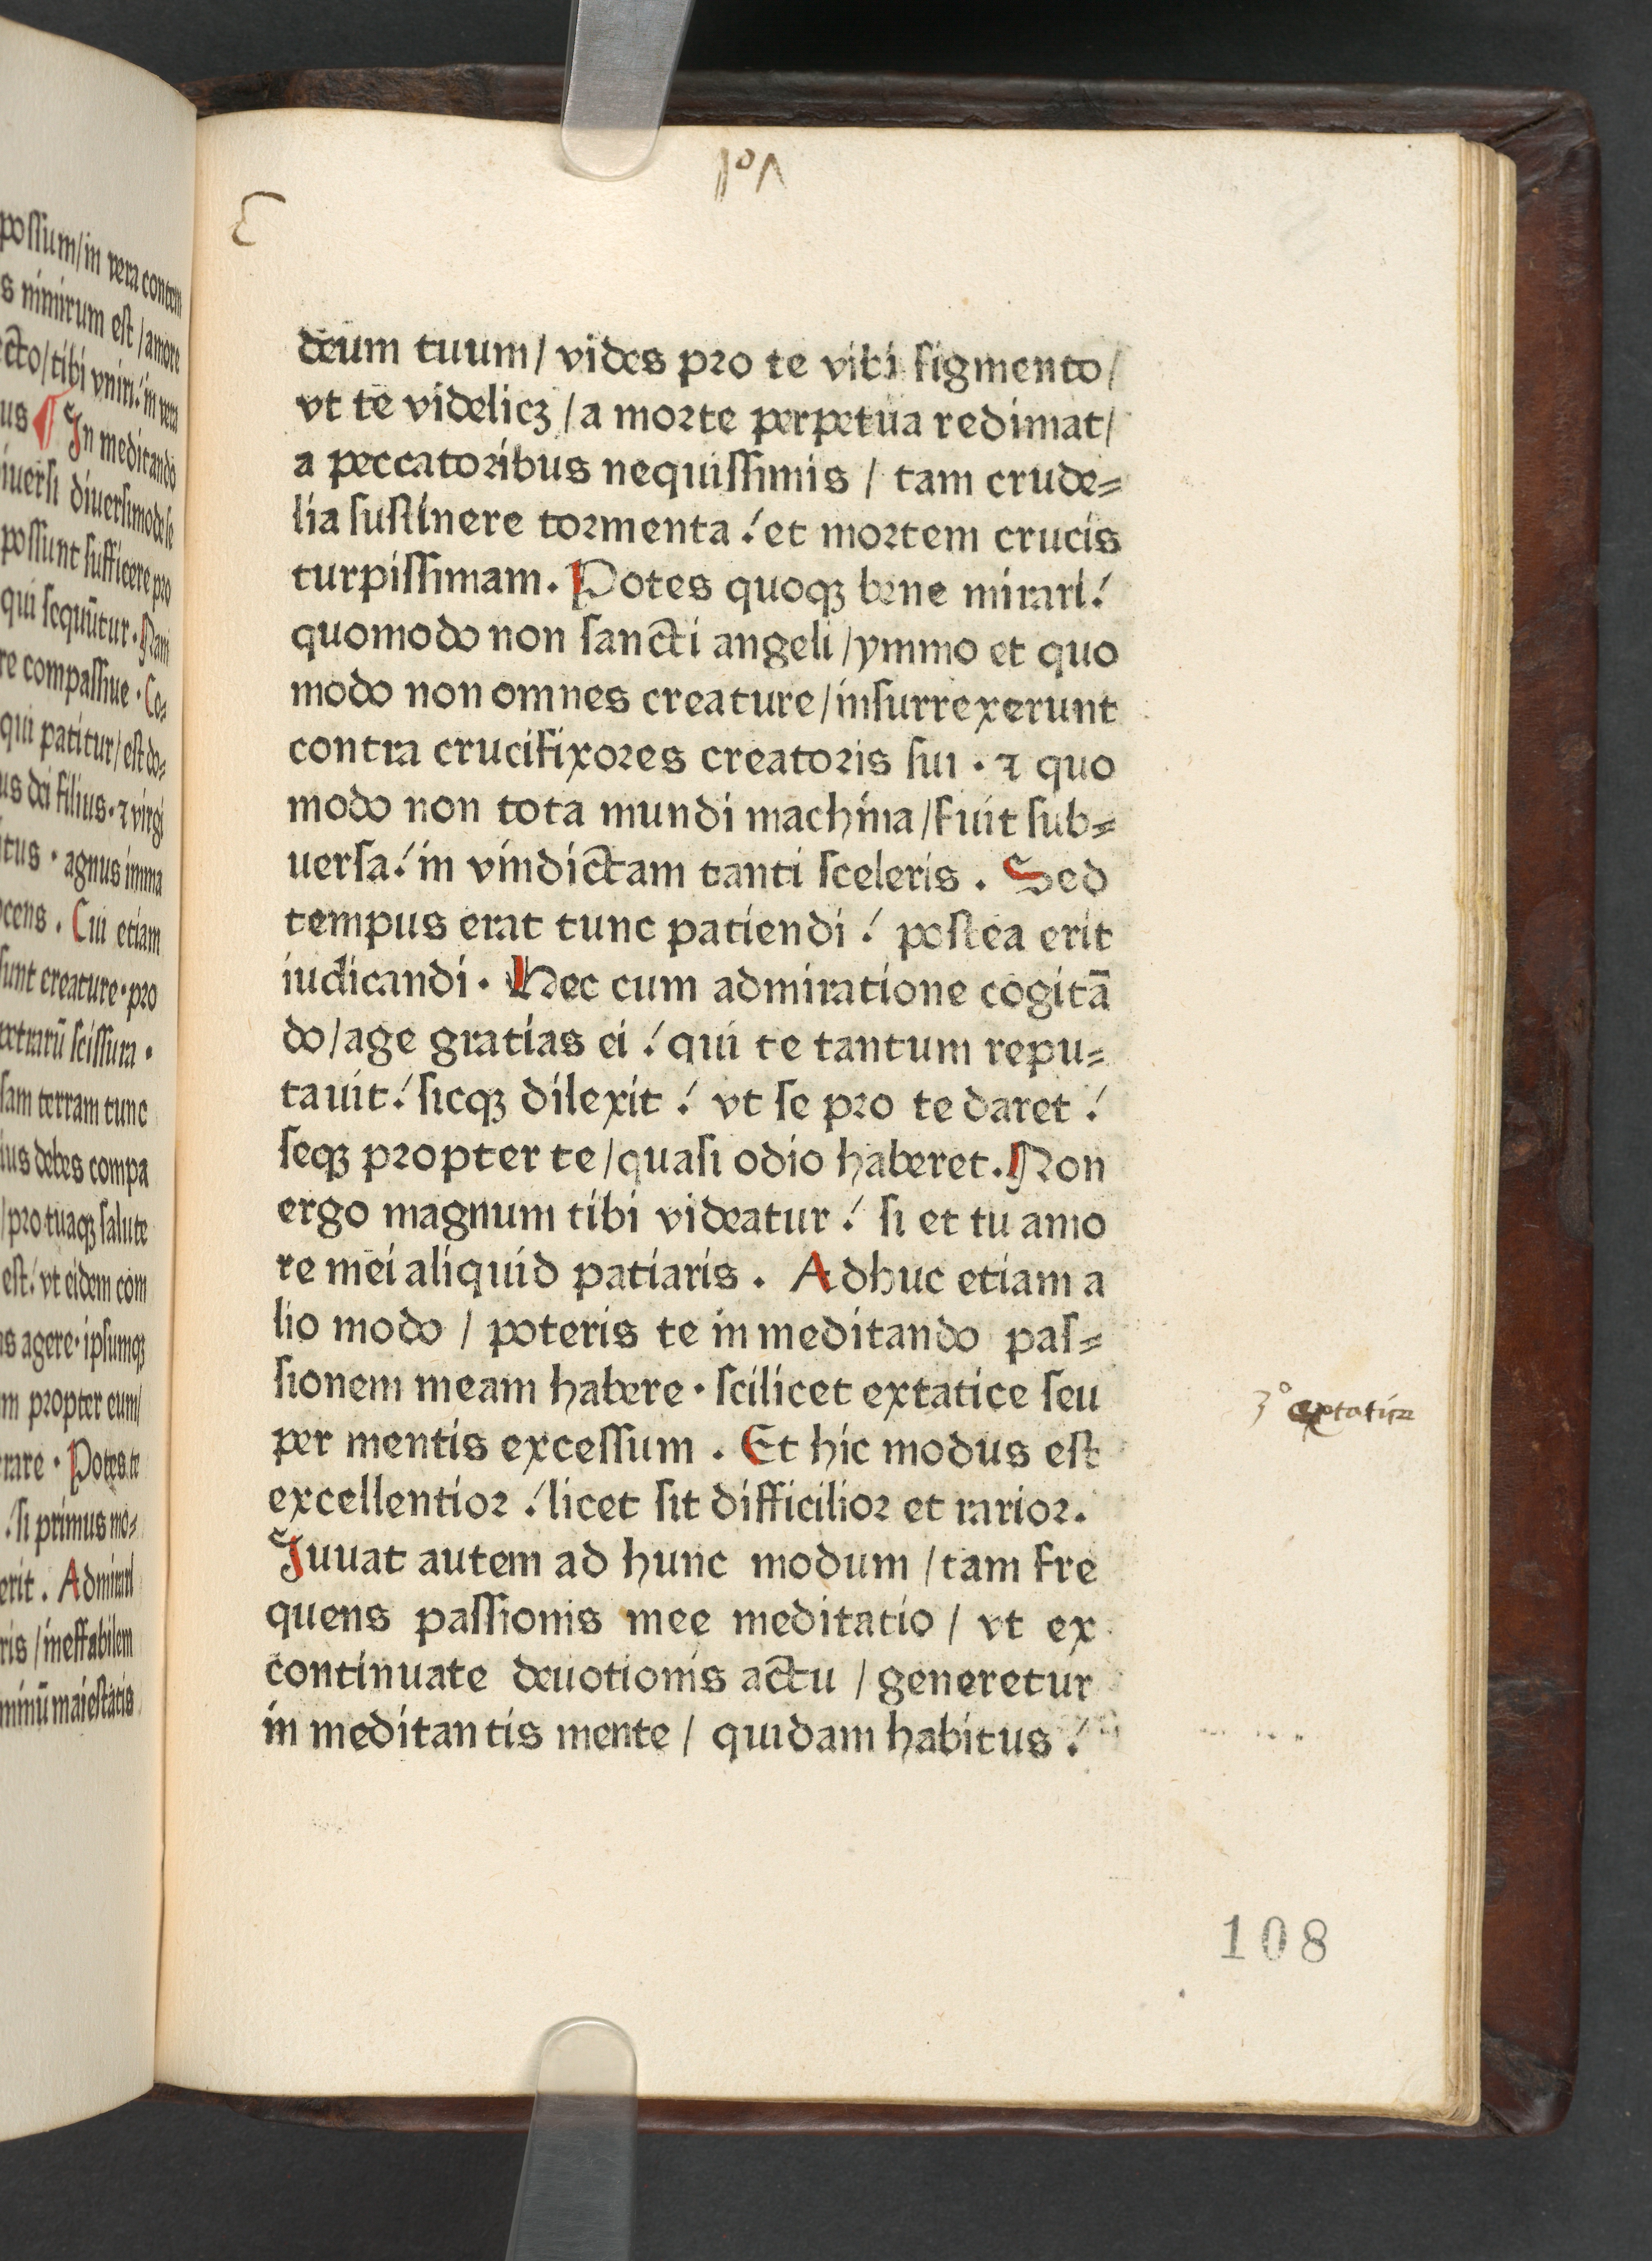 possum/in vera contem
s nimirum est/amore
cto/tibi vniri/in vera
us ¶ In meditando
iuersi diuersimode se
possunt sufficere pro
qui sequūtur. Nam
re compassiue. Co-
qui patitur/est do-
us dei filius. ⁊ virgi
tus. agnus imma
ocens. Cui etiam
sunt creature. pro
petrarū scissura.
sam terram tunc
ius debes compa
/pro tuaqꝫ salute
est/vt eidem com
s agere. ipsumqꝫ
m propter eum/
rare. Potes te
/si primus mo-
erit. Admirari
ris/ineffabilem
minū maiestatis
deum tuum/ vides pro te vili figmento/
vt te videlicꝫ/a morte perpetua redimat/
a peccatoribus nequissimis / tam crude=
lia sustinere tormenta / et mortem crucis
turpissimam. Potes quoqꝫ bene mirari/
quomodo non sancti angeli/ymmo et quo
modo non omnes creature/insurrexerunt
contra crucifixores creatoris sui. ⁊ quo
modo non tota mundi machina/fuit sub=
uersa/ in vindictam tanti sceleris. Sed
tempus erat tunc patiendi/ postea erit
iudicandi. Hec cum admiratione cogitā
do/age gratias ei/ qui te tantum repu=
tauit/ sicqꝫ dilexit/ vt se pro te daret/
seqꝫ propter te/quasi odio haberet. Non
ergo magnum tibi videatur/ si et tu amo
re mei aliquid patiaris. Adhuc etiam a
lio modo / poteris te in meditando pas=
sionem meam habere. scilicet extatice seu
per mentis excessum. Et hic modus est
excellentior / licet sit difficilior et rarior.
Juuat autem ad hunc modum /tam fre
quens passionis mee meditatio/ vt ex
continuate deuotionis actu / generetur
in meditantis mente/ quidam habitus/
3º
108